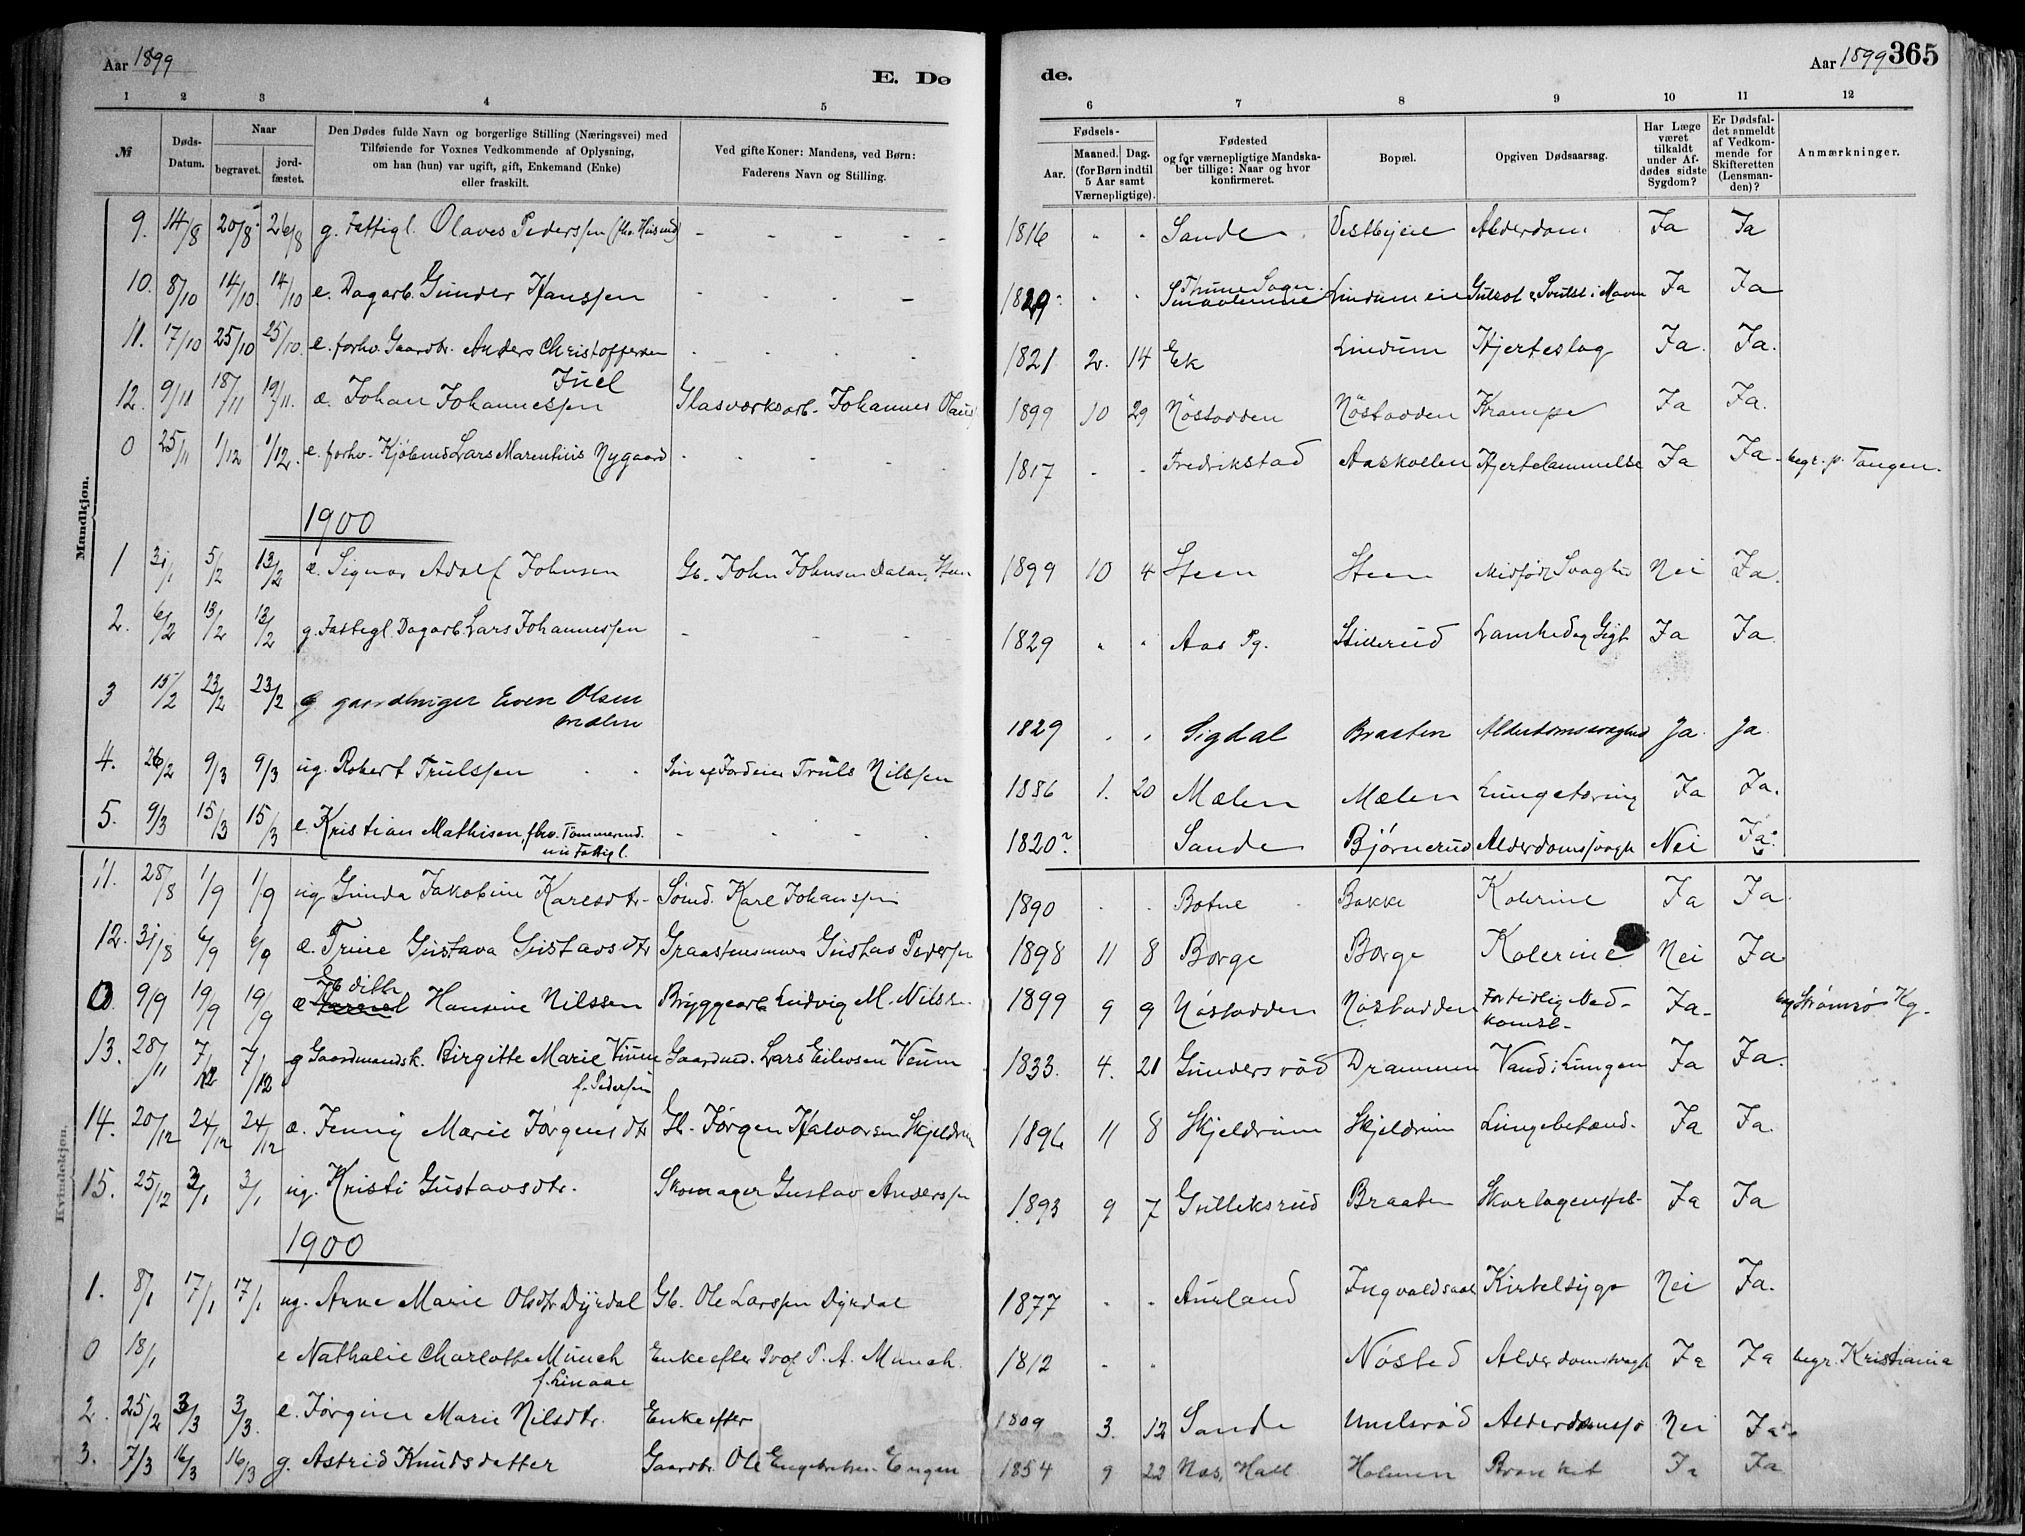 Aar 1899
E. Dø
de.
Aar 1899 365
1 2 3 4 5 6 7 8 9 10 11 12
№
Døds-Datum.
Naar
begravet.
jord-fæstet.
Den Dødes fulde Navn og borgerlige Stilling (Næringsvei) med
Tilføiende for Voxnes Vedkommende af Oplysning,
om han (hun) var ugift, gift, Enkemand (Enke)
eller fraskilt.
Ved gifte Koner: Mandens, ved Børn:
Faderens Navn og Stilling.
Fødsels-
Aar.
Maaned. Dag.
(for Børn indtil
5 Aar samt
Værnepligtige).
Fødested
og for værnepligtige Mandska-
ber tillige: Naar og hvor
konfirmeret.
Bopæl.
Opgiven Dødsaarsag.
Har Læge
været
tilkaldt
under Af-
dødes sidste
Sygdom?
Er Dødsfal-
det anmeldt
af Vedkom-
mende for
Skifteretten
(Lensman-
den)?
Anmærkninger.
Mandkjøn.
9. 14/8 20/8 26/8 g. Fattigl. Olaves Pederssen - - - - - 1816 " " Sande Alderdom Ja Ja
10. 8/10 14/10 14/10 e. Dagarb. Gunder Hanssen - - - - " " Lindum eie Ja Ja
11. 17/10 25/10 25/10. e. forhv. Gaardbr. Anders Christoffersen Juel - - - - 1821 2. 14 Ek Lindum Hjerteslag Ja. Ja.
12. 9/11 18/11 19/11. æ. Johan Johannessen Glasværksarb. Johannes Olaus 1899 10 29 Nøstodden Nøstodden Krampe Ja Ja.
0 25/11 1/12 1/12. e. forhv. Lars Marenthius Nygaard - - - - - 1817 - - Fredrikstad Aaskollen Hjertelammelse Ja Ja. begr. p. Tangen.
1900
1 31/1 5/2 13/2 æ. Signar Adolf Johnsen Gb. John Johnsen Steen 1899 10 4 Steen Steen Medfødt Svaghed Nei Ja.
2. 6/2 13/2 13/2 g. Fattigl. Dagarb. Lars Johannessen - - - - 1829 " " Aas Pg. Stillerud Gigt Ja Ja.
3 15/2 23/2 23/2 g gaardbruger Even Olsen 1829 " " Sigdal Braaten Alderdomssvaghed Ja. Ja.
4. 26/2 9/3 9/3 ug. Robert Trulssen Søn af Truls Nilssen 1886 1. 20 Mælen Mælen Lungetæring Ja Ja.
5. 9/3 15/3 15/3 e. Kristian Mathisen, fhv. Tømmermd. nu Fattigl. - - - - 1820? Sande Bjørnerud Alderdomssvagh Nei Ja.
Kvindekjøn.
11. 28/8 1/9 1/9 ug Gunda Jakobine Karlsdtr. Sømd. Karl Johanssen 1890 " " Botne Bakke Kolerine Ja Ja.
12. 31/8 6/9 6/9 æ. Trine Gustava Gustavsdtr Gustav Pederssen 1898 11 8 Borge Borge Kolerine Nei Ja
0. 9/9 19/9 19/9 æ Edith Hansine Nilssen Bryggearb. Ludvig M. Nilssen 1899 9 9 Nøstodden Nøstodden For tidlig Ned-komst- Ja- Strømsø Kg.
13. 28/11 7/12 7/12 g Gaardmandsk. Birgitte Marie Veum f. Pedersen Gaardmd. Lars Eilevsen Veum 1833. 4. 21 Gundersrød Drammen Vand i Lungen Ja Ja.
14. 20/12 24/12 24/12 æ. Jenny Marie Jørgensdtr Gb. Jørgen Halvorsen Skjeldrum 1896 11 8 Skjeldrum Skjeldrum Lungebetænd. Ja Ja.
15. 25/12 3/1 3/1 ug. Kristi Gustavsdtr. Skomager Gustav Anderssen 1893 9 7 Gulleksrud Braaten Skarlagensfeb. Ja Ja
1900
1. 8/1 17/1 17/1 ug. Anne Marie Olsdtr Dyrdal Gb. Ole Larssen Dyrdal 1877 " " Aurland Kirtelsyge Nei Ja.
0 18/1 e Nathalie Charlotte Munch f. Linaae Enke efter Prof P. A. Munch. 1812 " " Nøsted Alderdomssvagh Ja Ja begr. Kristiania
2. 25/2 3/3 3/3. e. Jørgine Marie Nilsdtr. Enke efter 1809 3. 12 Sande Alderdomssv Nei Ja.
3. 7/3 16/3 16/3 g. Astrid Knudsdatter Gaardbr. Ole Engebretsen Engen 1854 9 22 Næs, Hall Holmen Bronkit Ja Ja